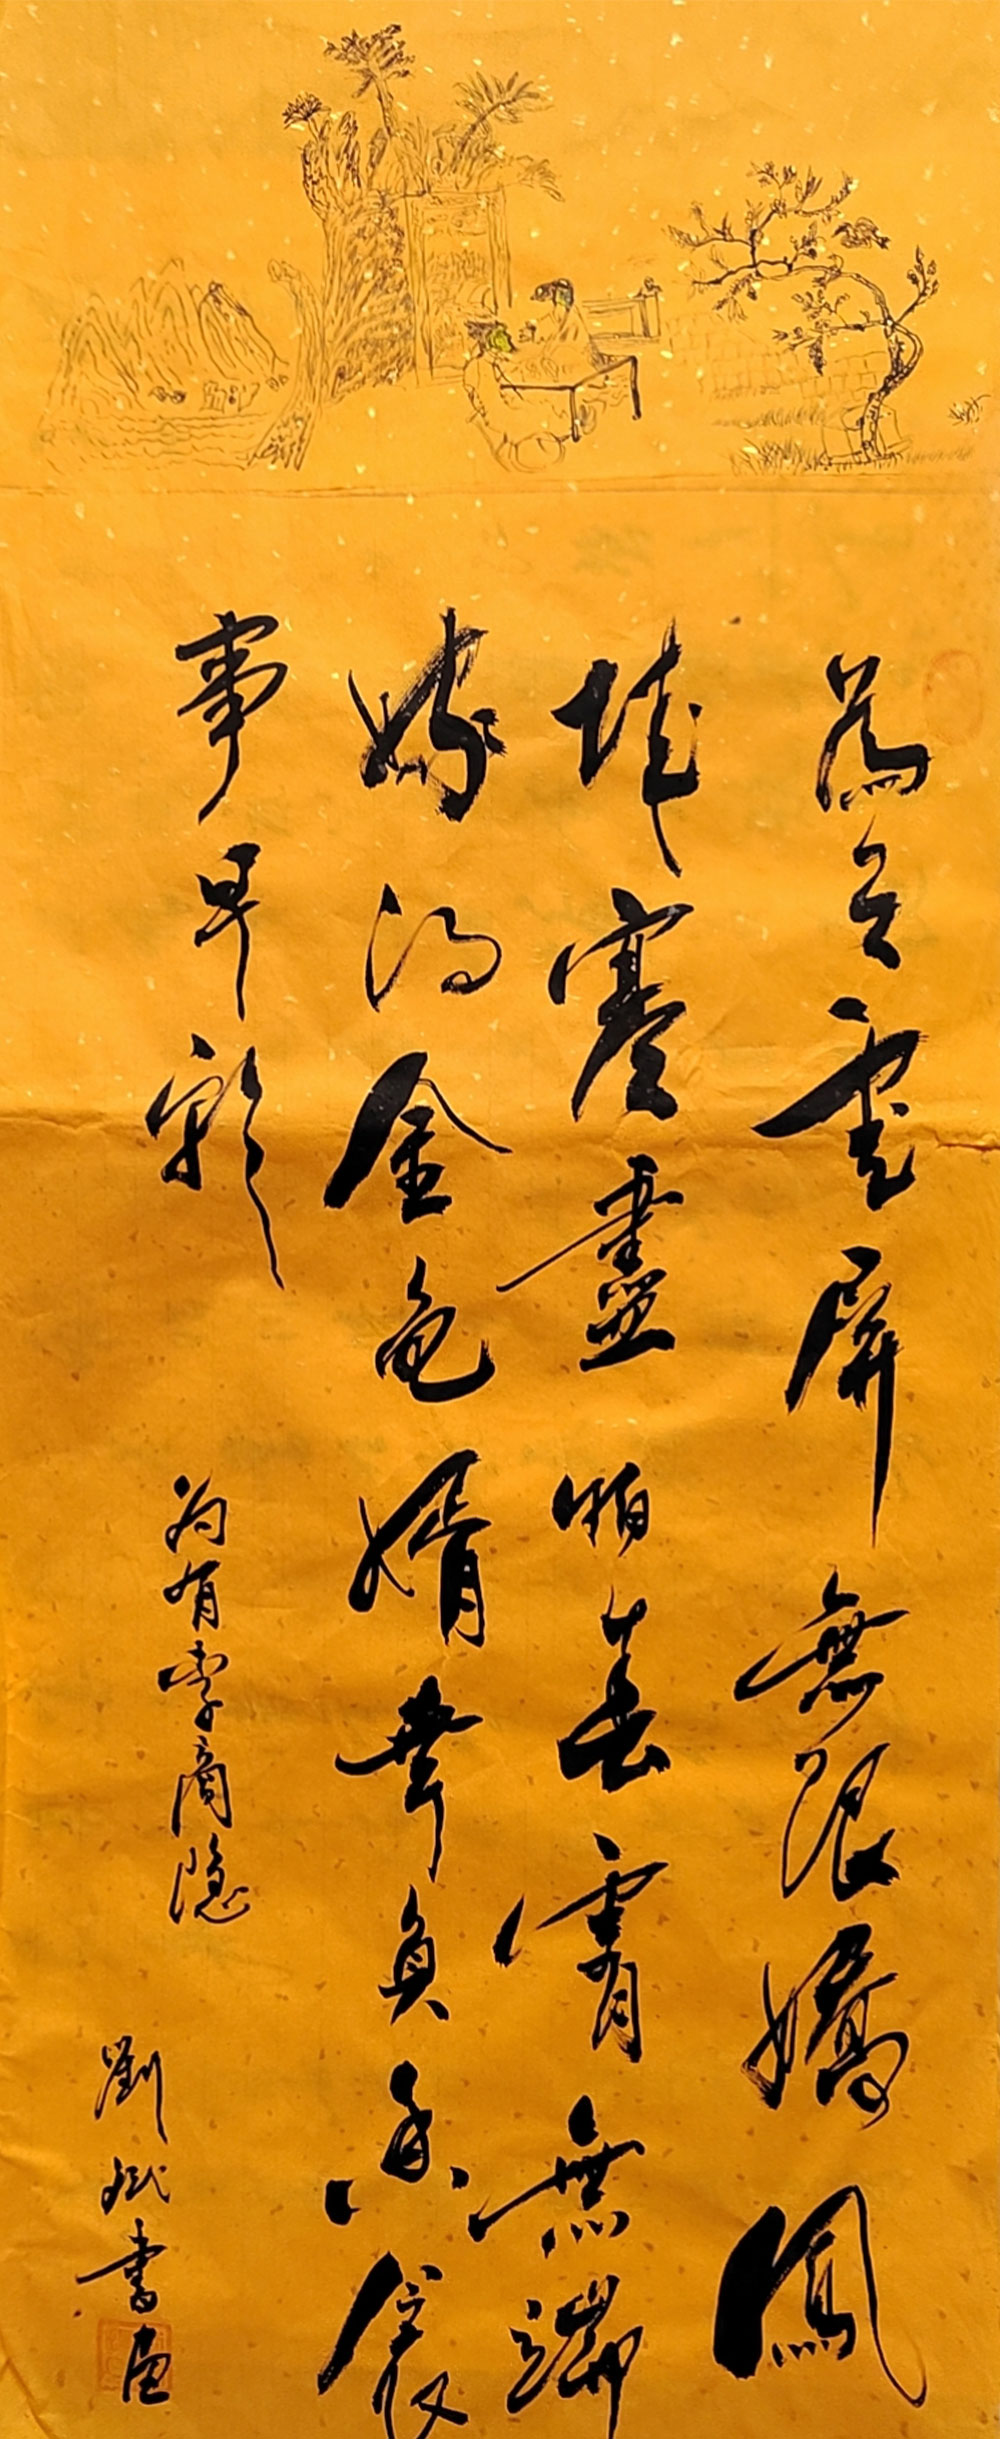 為有雲屏無限嬌鳳
城寒盡怕春宵無端
嫁得金龜婿辜負香衾
事早朝
为有李商隐
劉斌書画